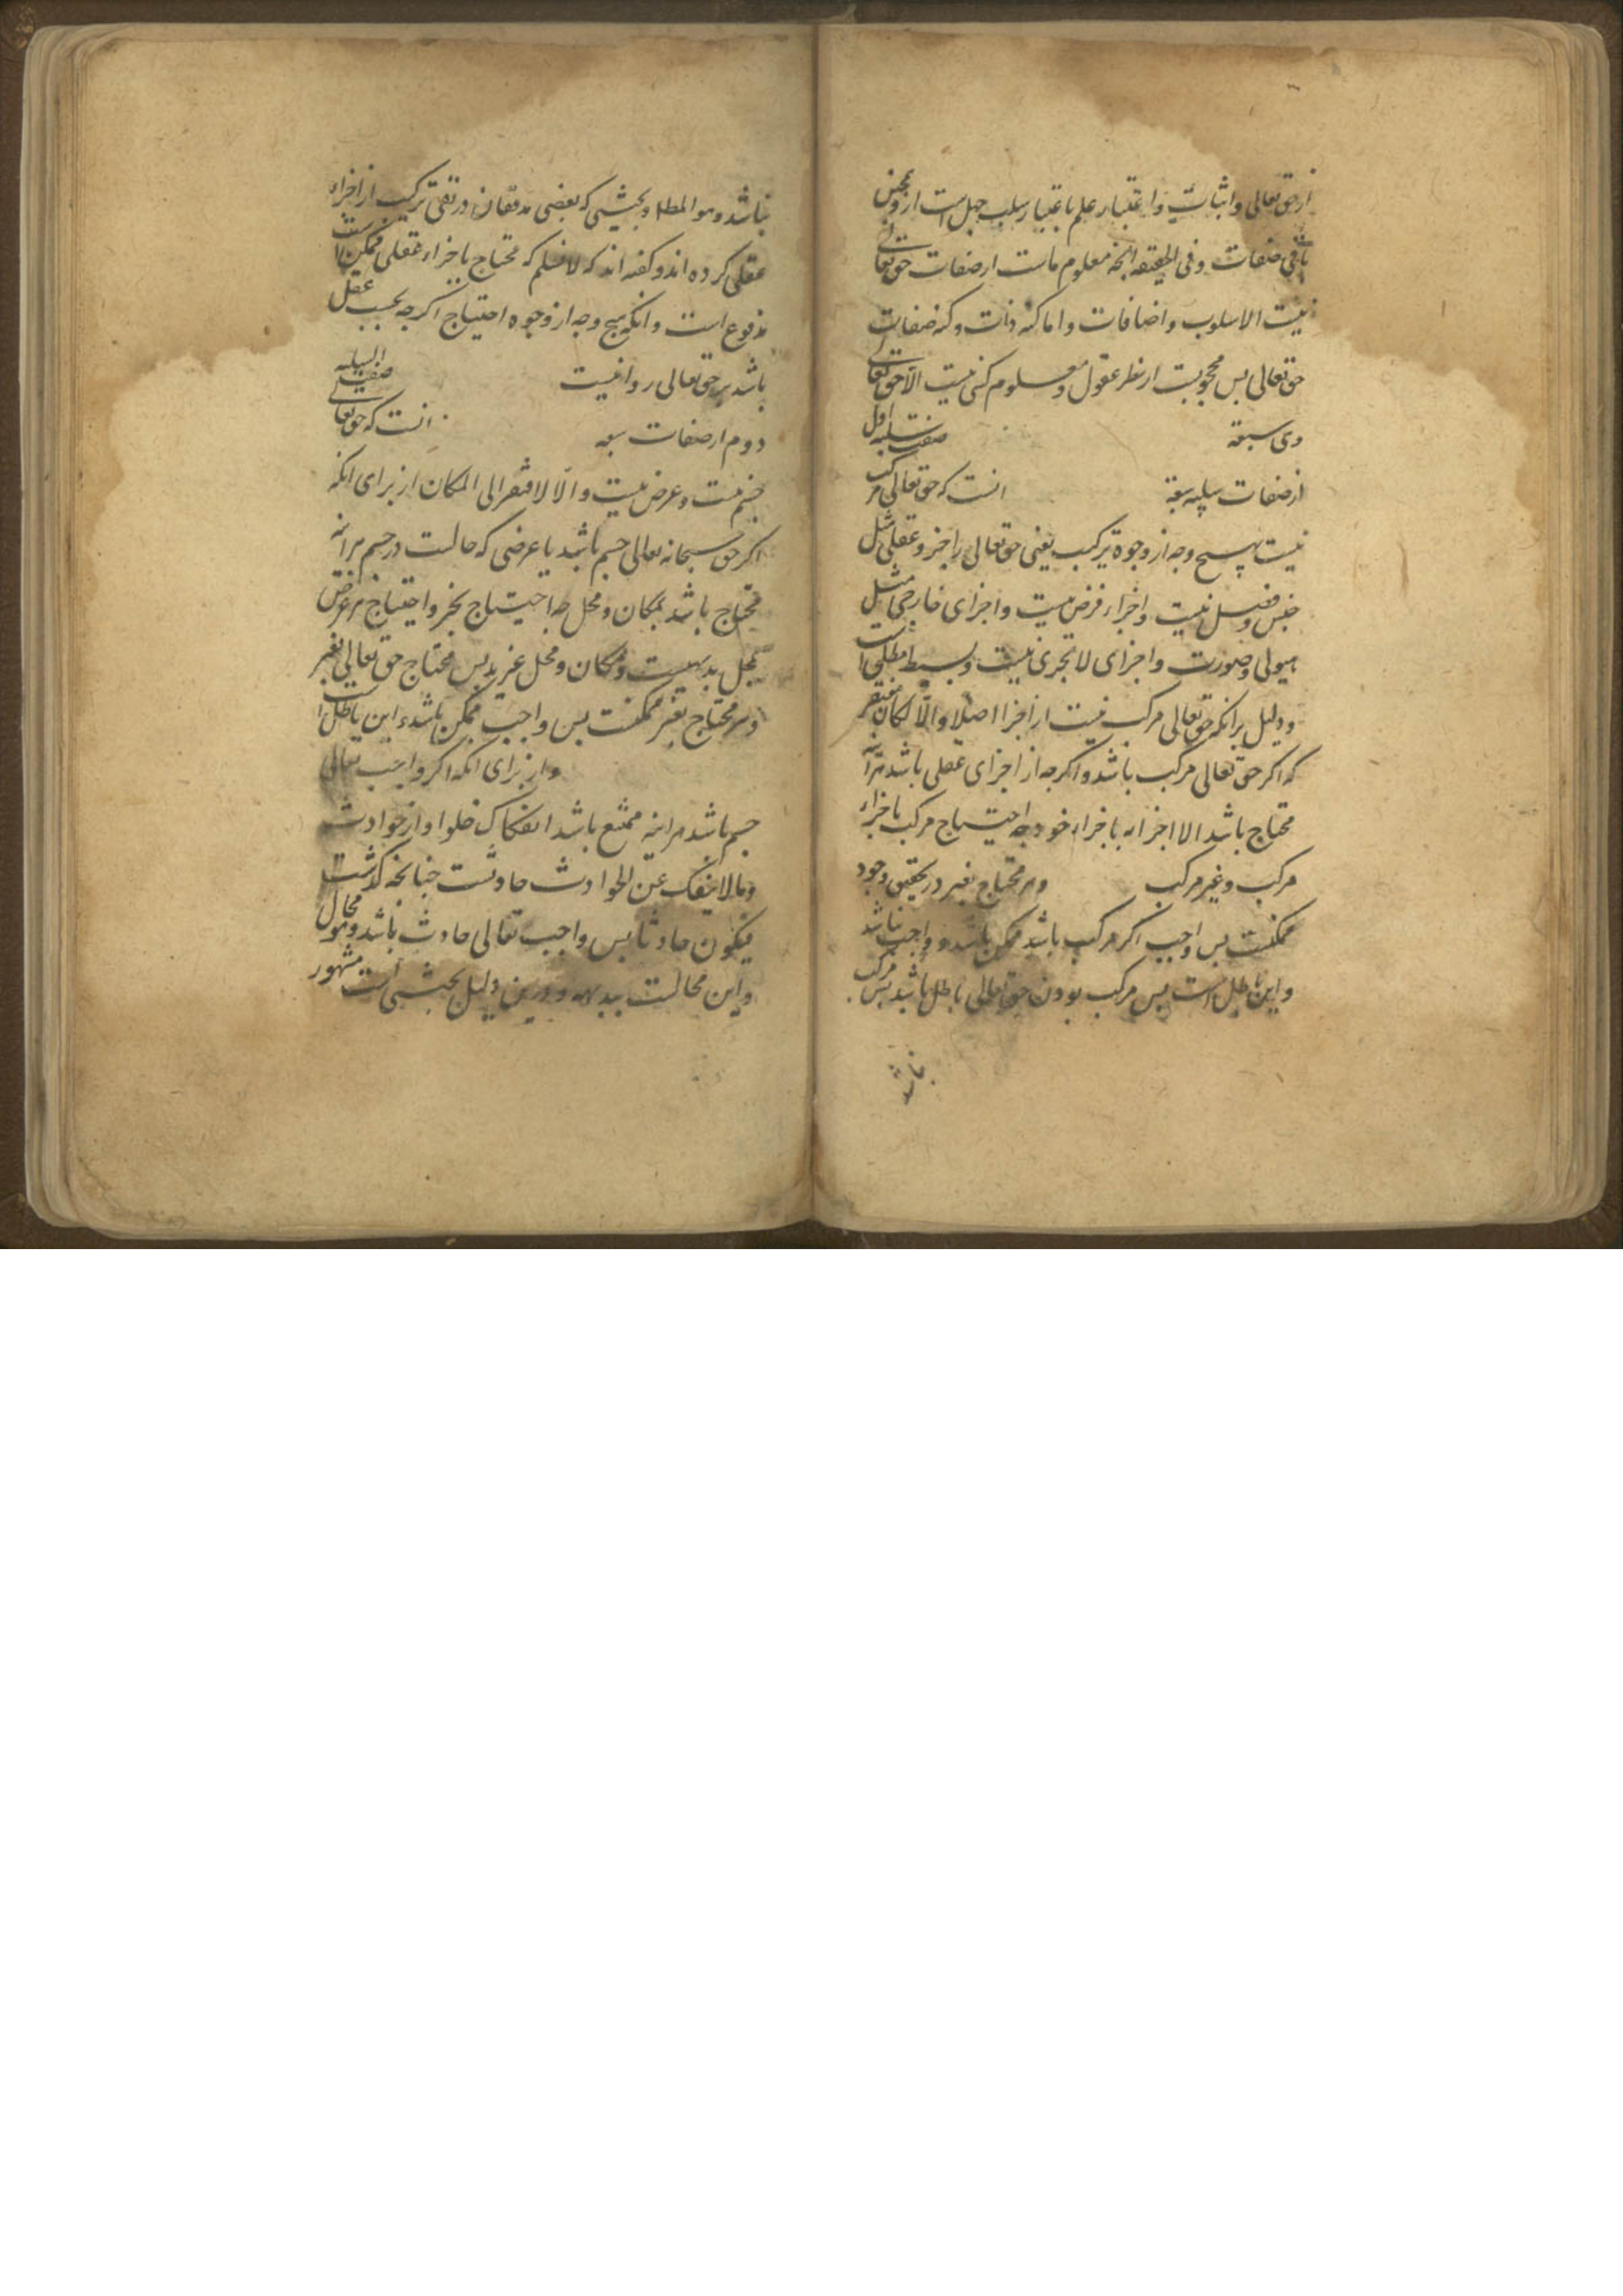 از حق تعالی و اثبات و اعتبار علم باعتبار سلب جهل است ازو و همچنین
باقی صفات و فی الحقیقه انچه معلوم ماست از صفات حق تعالی
نیست الا سلوب و اضافات و اما کنه ذات و کنه صفات
حق تعالی پس محجوبست از نظر عقول و معلوم کسی نیست الا حق تعالی
وی سبعة صفت سلبیه اول
از صفات سلبیه سبعة انست که حق تعالی مرکب
نیست بهیچ وجه از وجوه ترکیب یعنی حق تعالی را جزو عقلی مثل
جنس و فصل نیست و اجزاء فرضی نیست و اجزای خارجی مثل
هیولی و صورت و اجزای لا تجزی نیست و بسیط مطلق است
و دلیل برانکه حق تعالی مرکب نیست از اجزا اصلا و الّا لکان مفتقر
که اکر حق تعالی مرکب باشد و اکرچه از اجزای عقلی باشد هراینه
محتاج باشد الا اجزائه باجزاء خود چه احتیاج مرکب باجزاء
مرکب و غیر مرکب و هر محتاج بغیر در تحقیق وجود
ممکنست پس واجب اکر مرکب باشد ممکن باشد و واجب نباشد
و این باطل است پس مرکب بودن حق تعالی باطل باشد پس مرکب
نباشد
نباشد و هو المطلـ و بحثی که بعضی مدققان در نفی ترکیب از اجزاء
عقلی کرده اند و کفته اند که لا نسلم که محتاج باجزاء عقلی ممکن است
مدفوع است و انکه هیچ وجه از وجوه احتیاج اکرچه بحسب عقل
باشد بر حق تعالی روا نیست صفت السلبیه
دوم از صفات سبعه انست که حق تعالی
جسم نیست و عرض نیست و الّا لافتقر الی المکان از برای انکه
اکر حق سبحانه تعالی جسم باشد یا عرضی که حالست در جسم هراینه
محتاج باشد بمکان و محل چه احتیاج بحیز و احتیاج هر عرض
بمحل بدیهیست و مکان و محل غیرند پس محتاج حق تعالی بغیر
و هر محتاج بغیر ممکنست پس واجب ممکن باشد و این باطل است
و از برای انکه اکر واجب تعالی
جسم باشد هراینه ممتنع باشد انفکاک خلو او از حوادث
و ما لا ینفک عن الحوادث حادثست چنانچه کذشت
فیکون حادثا پس واجب تعالی حادث باشد و هو محال
و این محالست ببدیهه و درین دلیل بحثی است مشهور